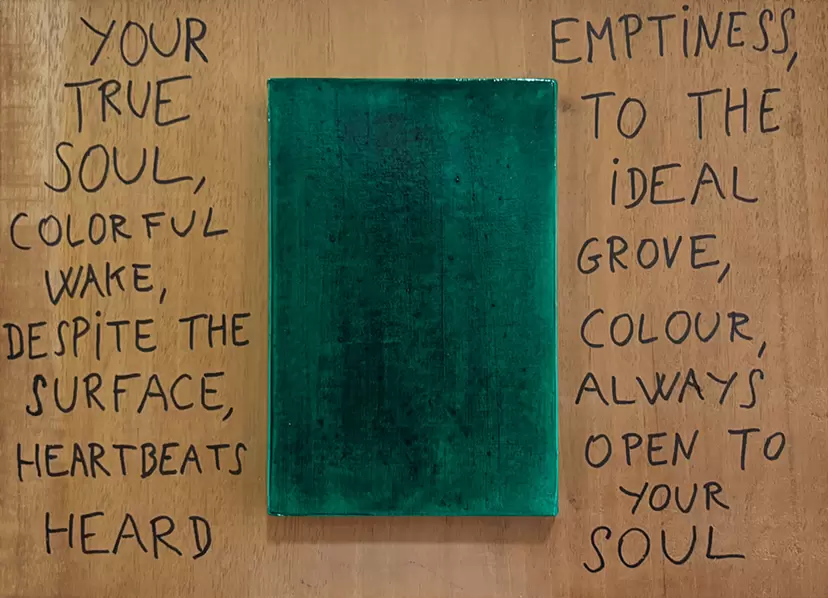 YOUR
TRUE
SOUL,
COLORFUL
WAKE,
DESPITE THE
SURFACE,
HEARTBEATS
HEARD
EMPTINESS,
TO THE
IDEAL
GROVE,
COLOUR,
ALWAYS
OPEN TO
YOUR
SOUL